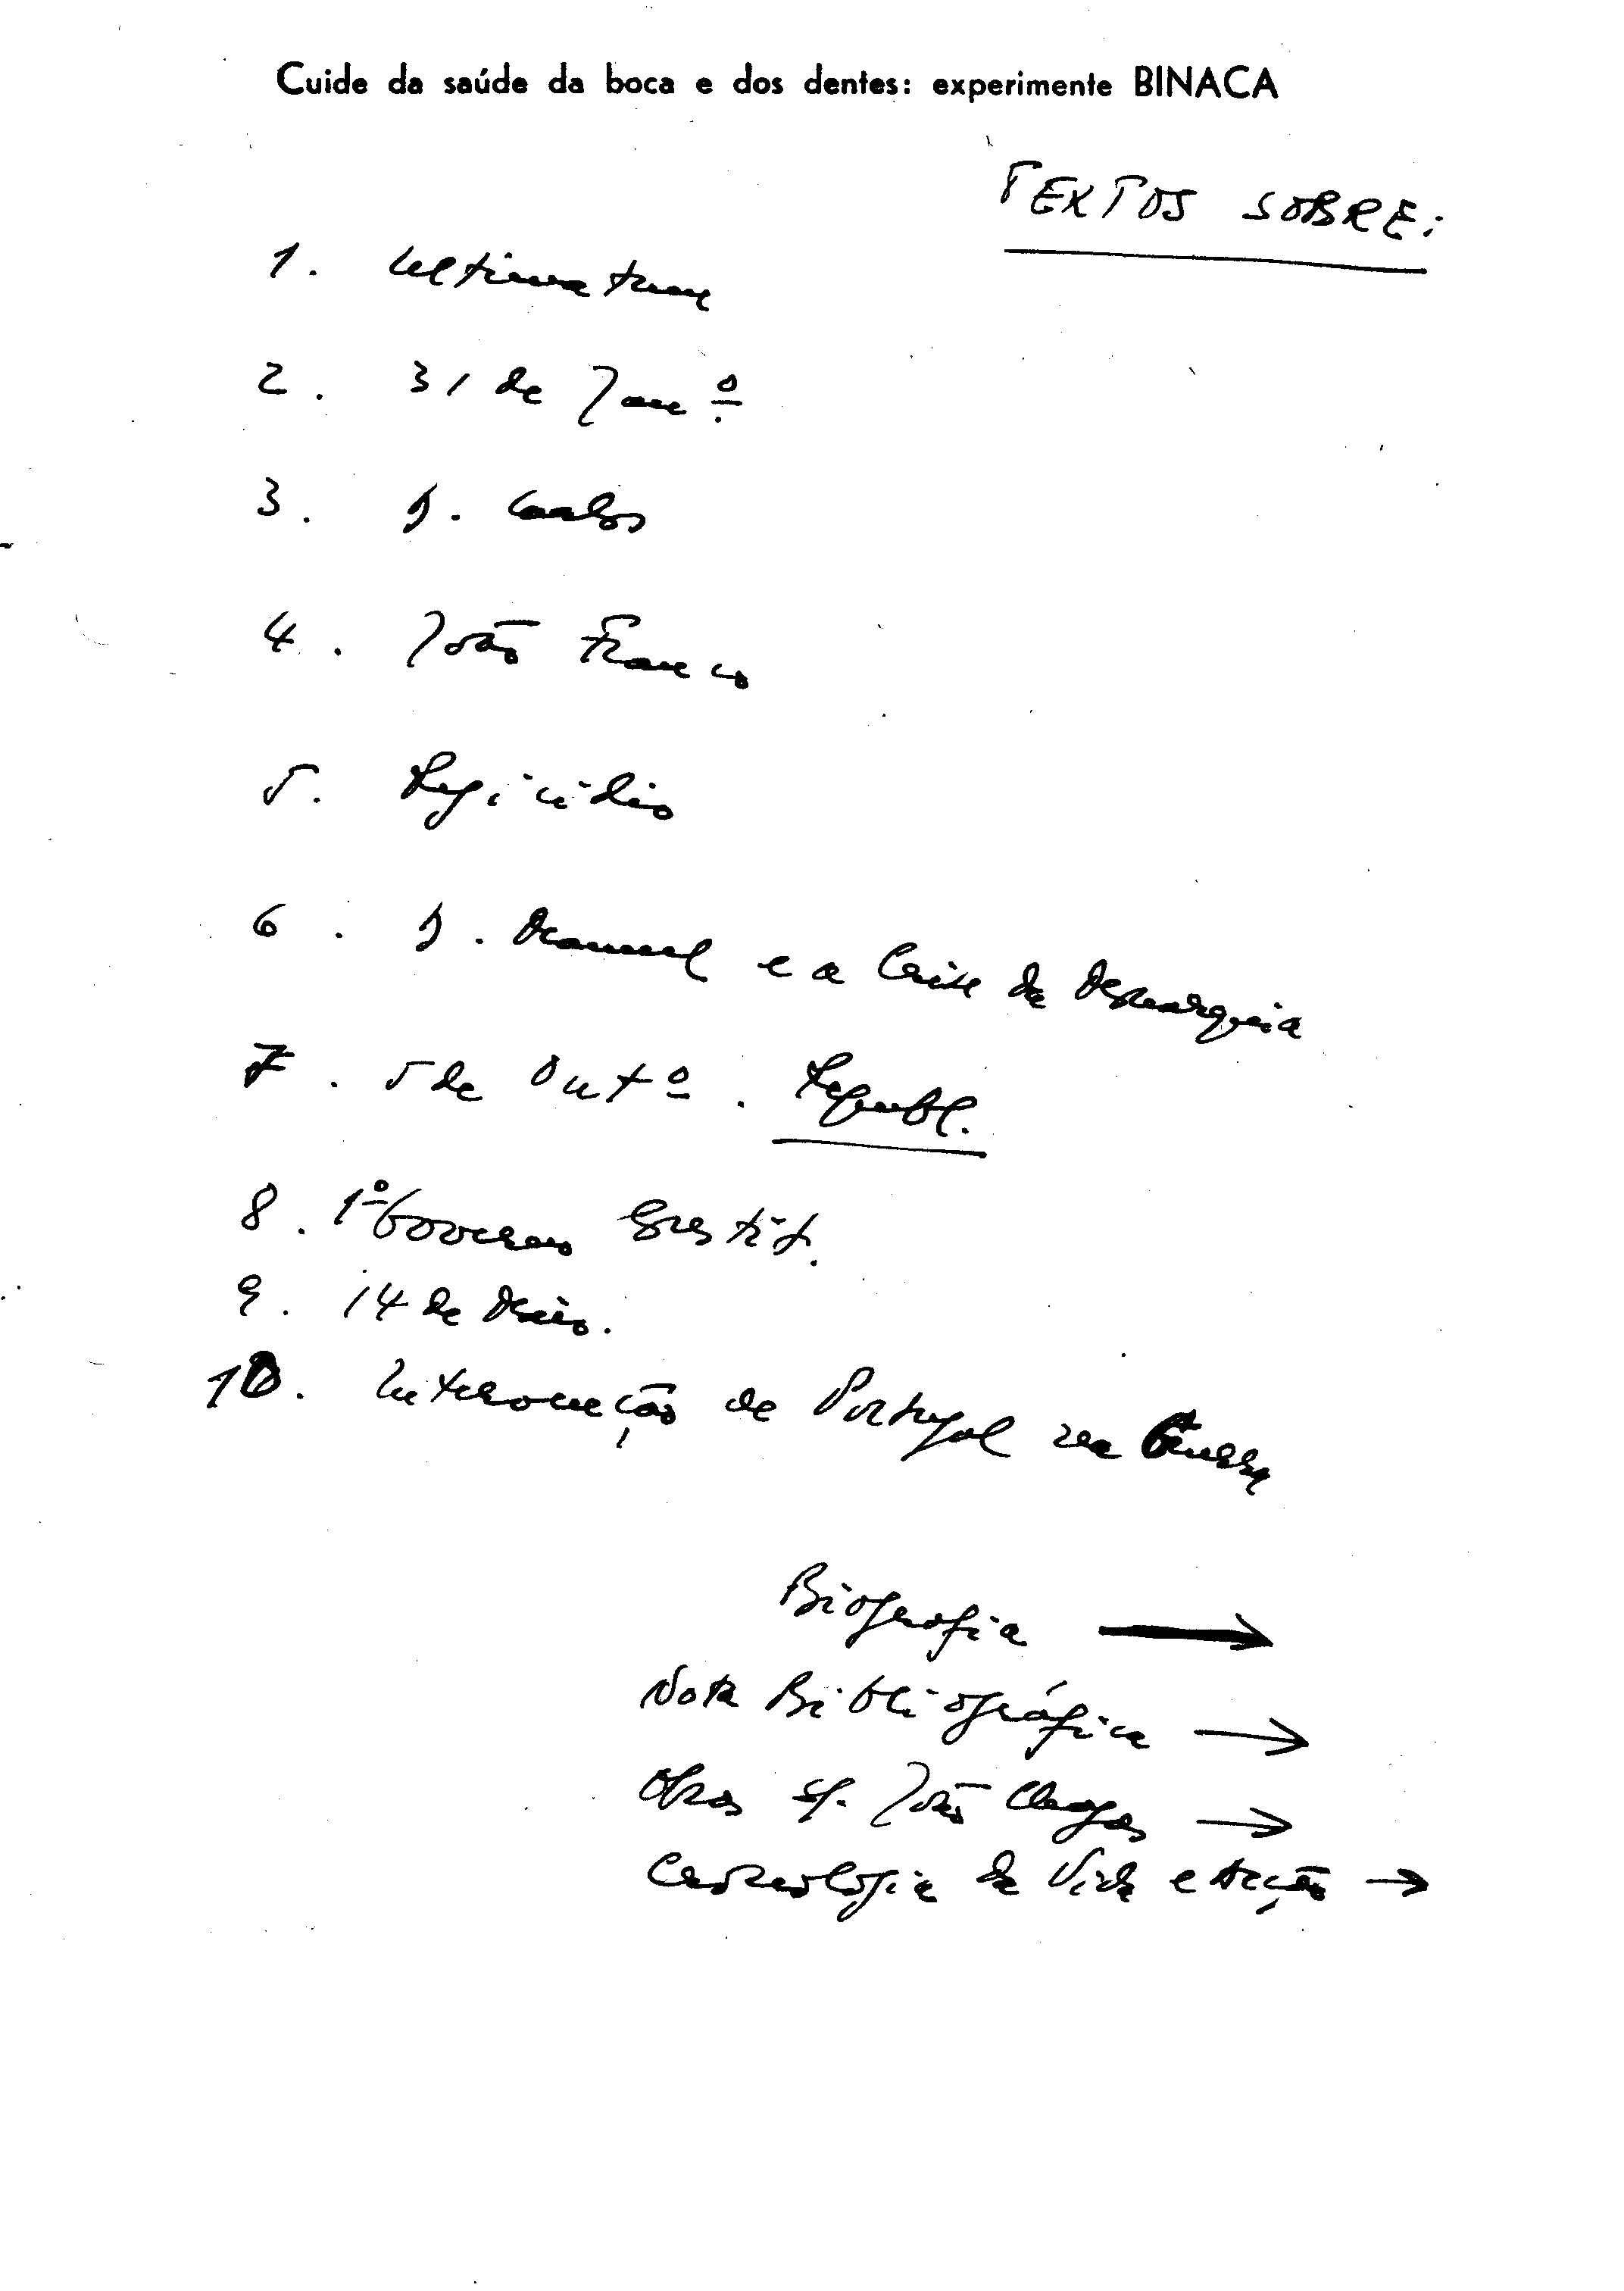 Cuide da saúde da boca e dos dentes: experimente BINACA
TEXTOS SOBRE:
1. Ultimatum
2. 31 de Janº
3. D. Carlos
4. João Franco
5. Regicídio
6. D. Manuel e a Crise da Monarquia
7. 5 de Outº. Republ.
8. 1º Governo Constit.
9. 14 de Maio.
10. Intervenção de Portugal na Guerra
Biografia →
Nota Bibliográfica →
Obras sf. João Chagas →
Cronologia da Vida e Acção →